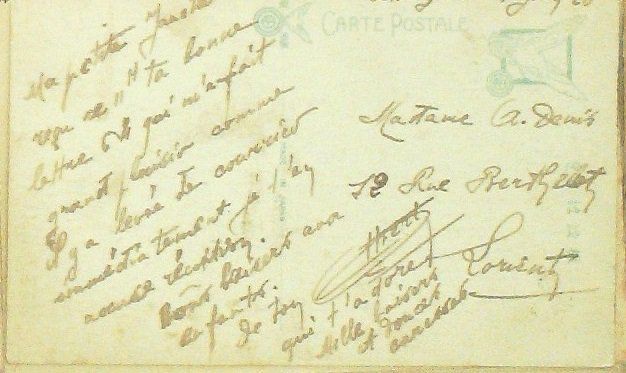 CARTE POSTALE
Ma petite
reçu ce " ta bonne
lettre qui m'a fait
grand plaisir comme
Il y a levée de courrier
immédiatement je t'en
accuse réception.
Bons baisers aux
enfants.
de ton
qui t'adore
Mille baisers
et douces
caresses
Madame A. Denis
12 Rue Berthelot
Lorient